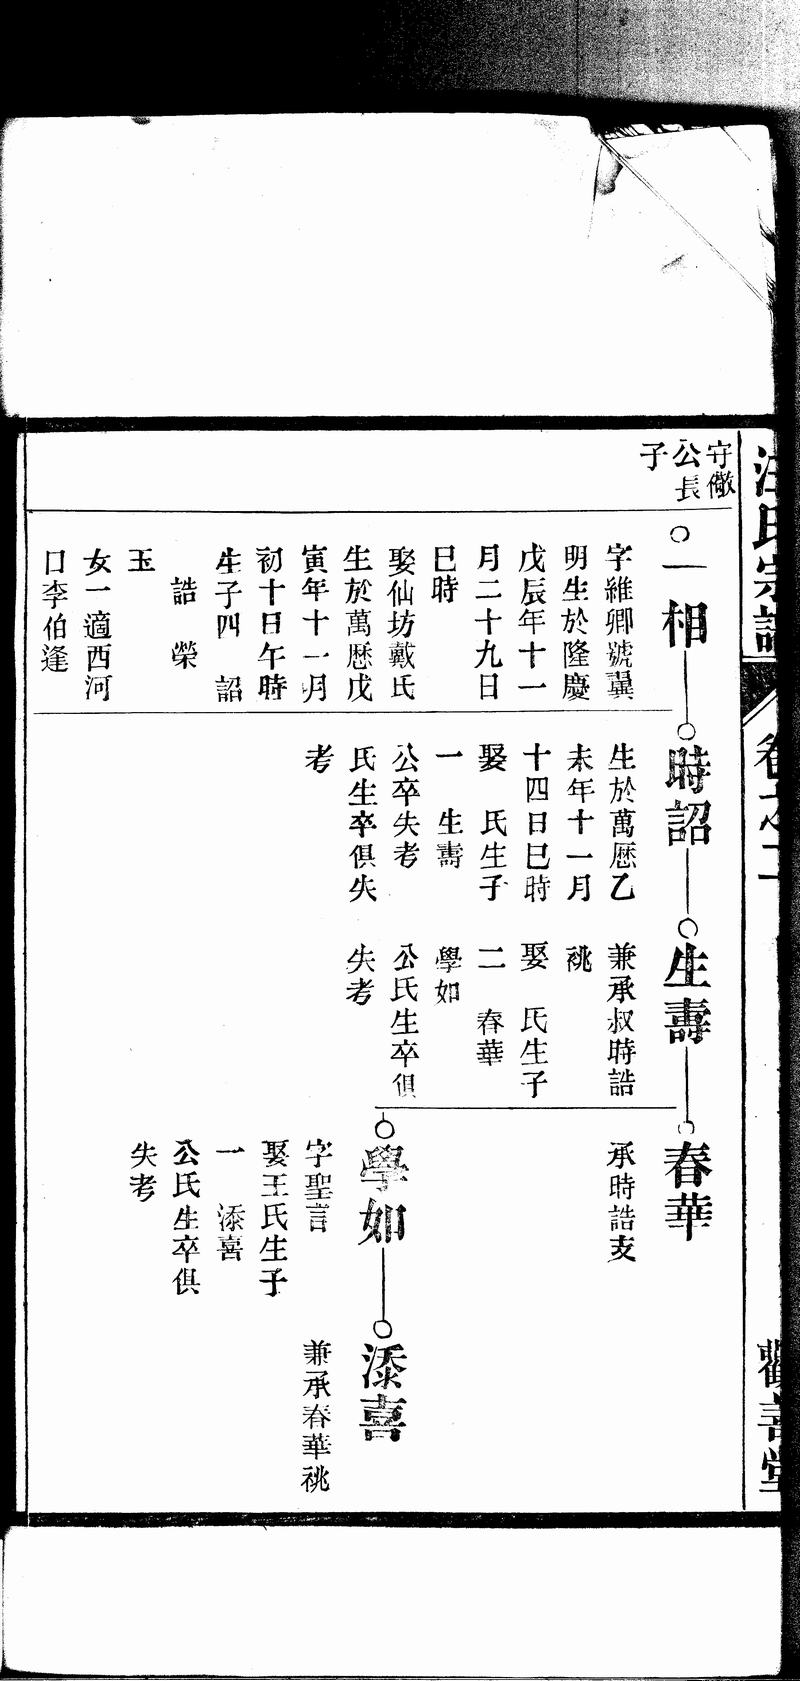 汪氏宗譜
卷之二
守儆
公長
子
一相
字維卿號翼
明生於隆慶
戊辰年十一
月二十九日
巳時
娶仙坊戴氏
生於萬歷戊
寅年十一月
初十日午時
生子四 詔
誥 榮
玉
女一適西河
口李伯逢
時詔
生於萬歷乙
未年十一月
十四日巳時
娶 氏生子
一 生壽
公卒失考
氏生卒俱失
考
生壽
兼承叔時誥
祧
娶 氏生子
二 春華
學如
公氏生卒俱
失考
春華
承時誥支
學如
字聖言
娶王氏生子
一 添喜
公氏生卒俱
失考
添喜
兼承春華祧
善堂